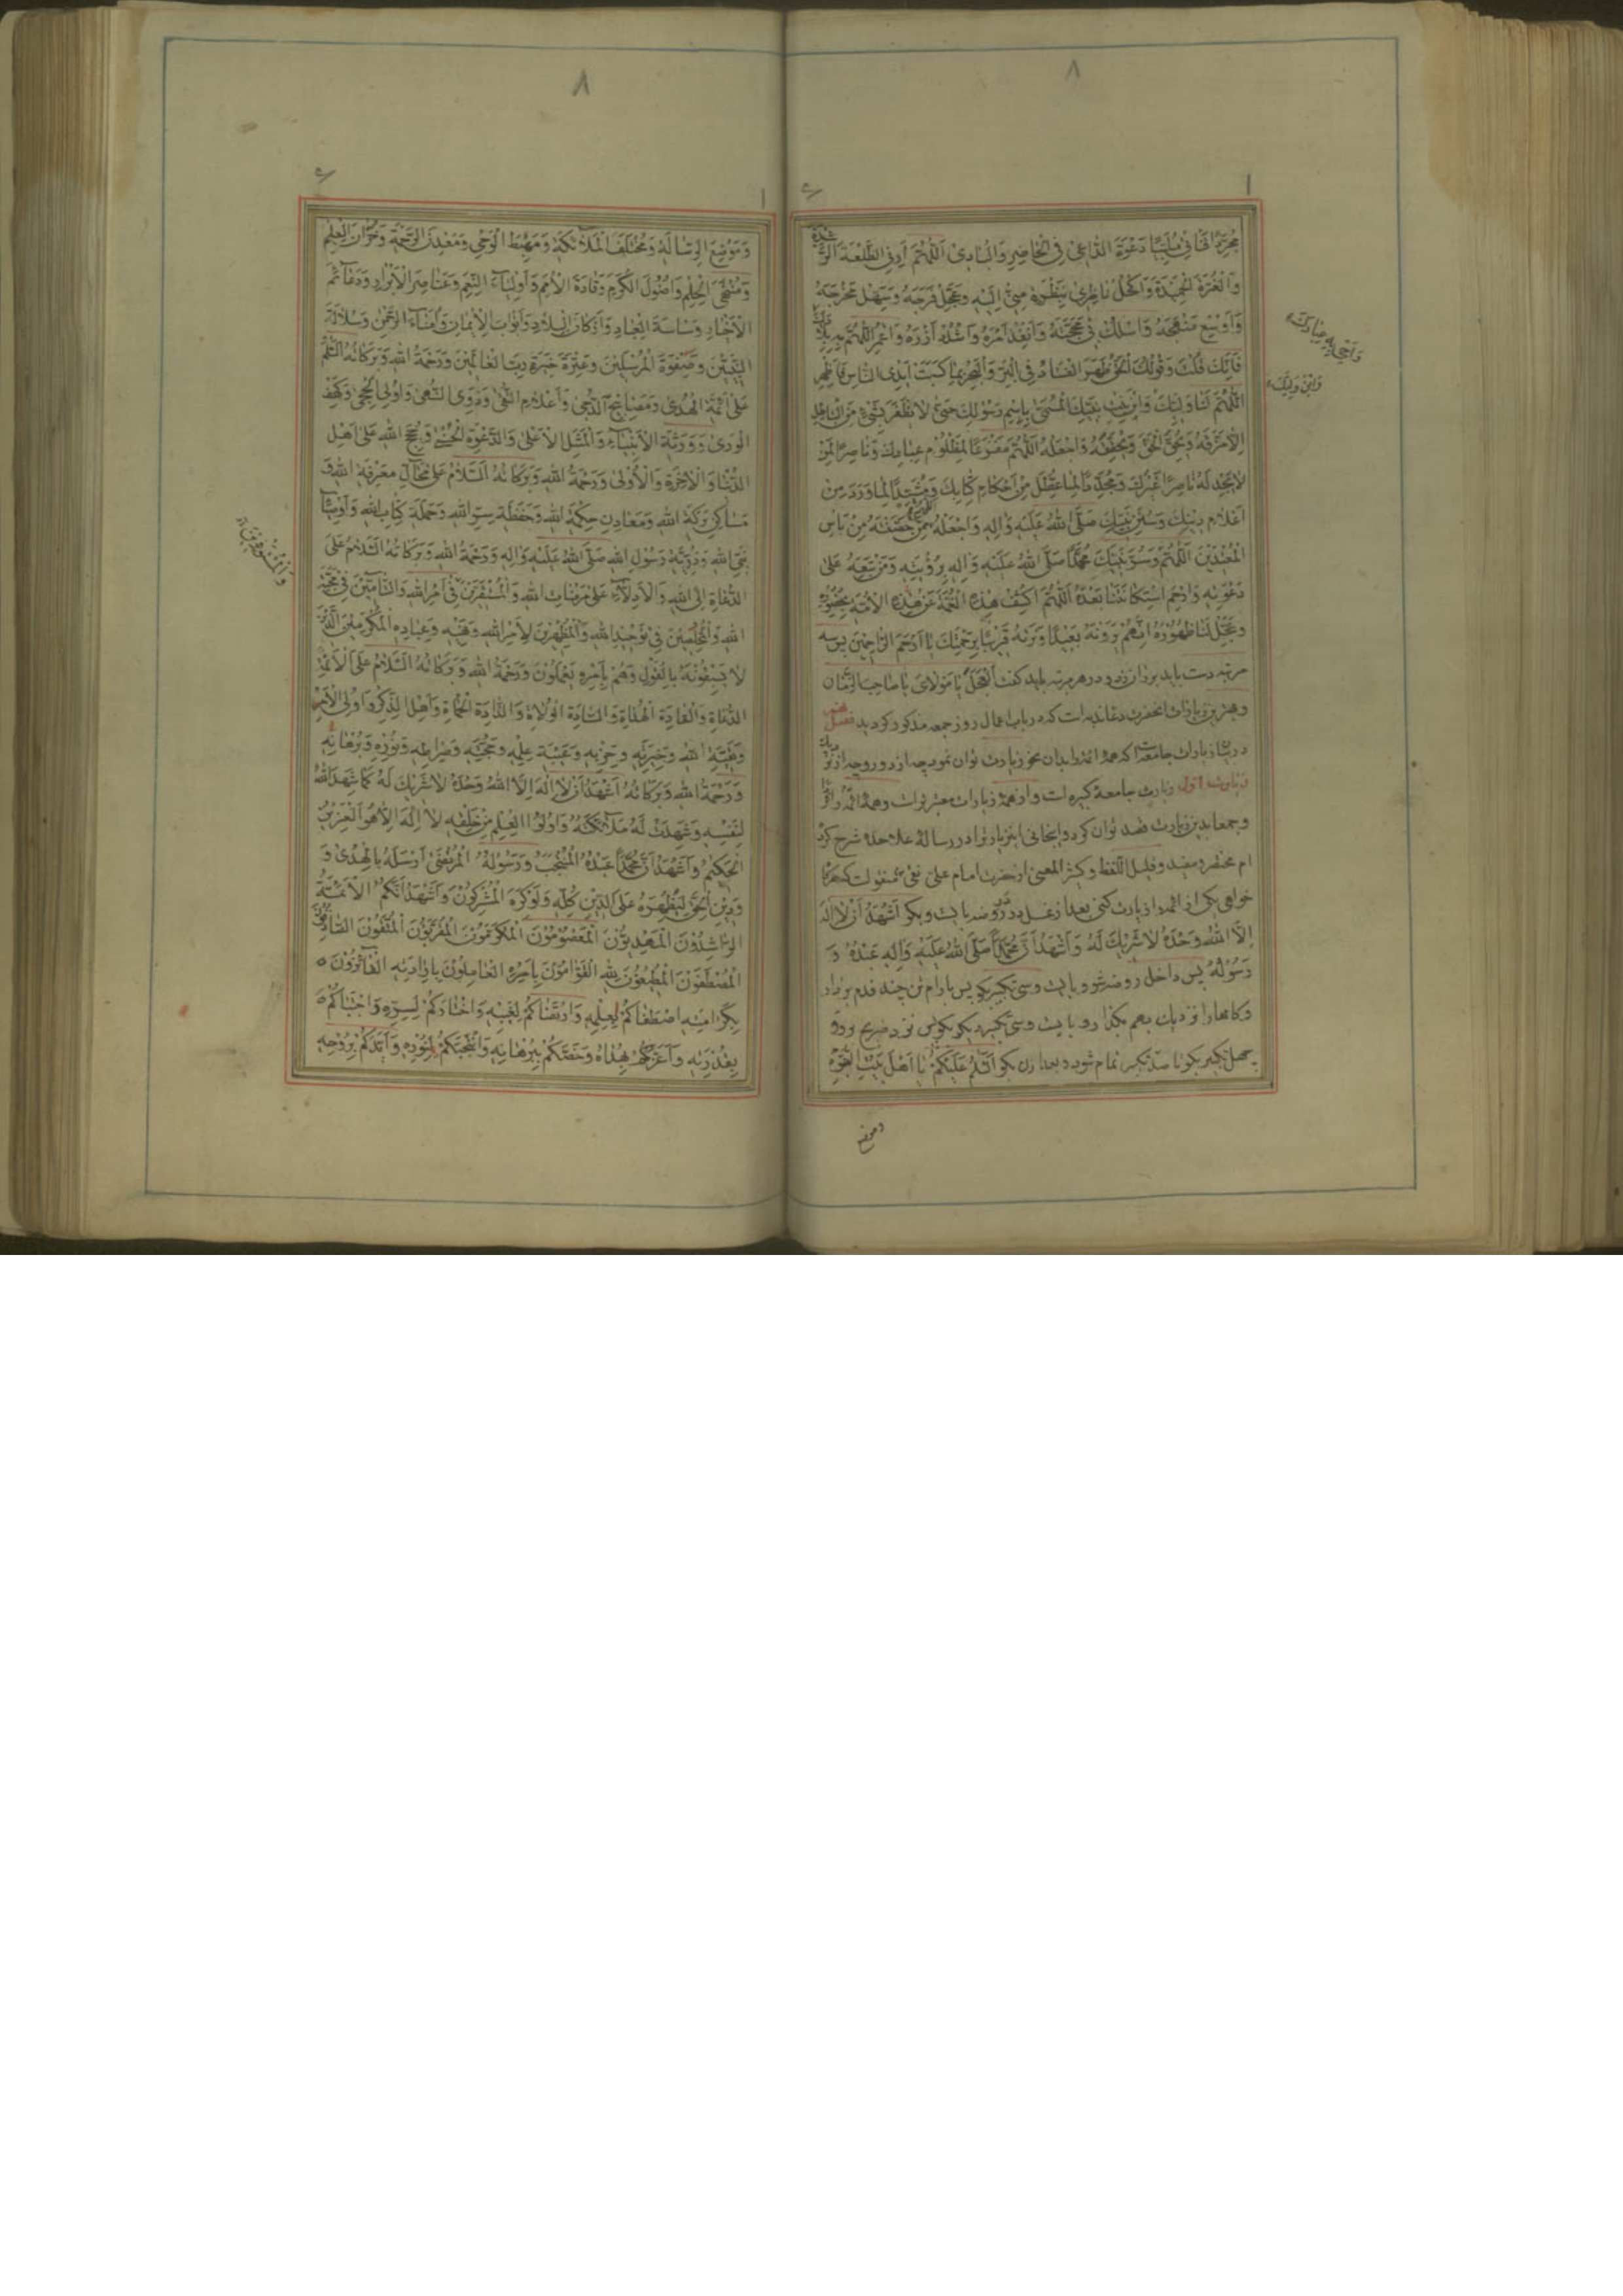 ۸
مُجَرِّدًا قَنَاتِی مُلَبِّیًا دَعْوَةَ الدَّاعِی فِی الْحَاضِرِ وَالْبَادِی اَللّٰهُمَّ اَرِنِی الطَّلْعَةَ الرَّشیدَةَ
وَالْغُرَّةَ الْحَمِیدَةَ وَاکْحُلْ نَاظِرِی بِنَظْرَةٍ مِنِّی اِلَیْهِ وَعَجِّلْ فَرَجَهُ وَسَهِّلْ مَخْرَجَهُ
وَاَوْسِعْ مَنْهَجَهُ وَاسْلُكْ بِی مَحَجَّتَهُ وَاَنْفِذْ اَمْرَهُ وَاشْدُدْ اَزْرَهُ وَاعْمُرِ اللّٰهُمَّ بِهِ بِلَادَكَ
وَاَحْیِ بِهِ عِبَادَكَ
فَاِنَّكَ قُلْتَ وَقَوْلُكَ الْحَقُّ ظَهَرَ الْفَسَادُ فِی الْبَرِّ وَالْبَحْرِ بِمَا کَسَبَتْ اَیْدِی النَّاسِ فَاَظْهِرِ
اللّٰهُمَّ لَنَا وَلِیَّكَ وَابْنَ بِنْتِ نَبِیِّكَ الْمُسَمّٰی بِاِسْمِ رَسُولِكَ حَتّٰی لَا یَظْفَرَ بِشَیْءٍ مِنَ الْبَاطِلِ
وَابْنَ وَلِیِّكَ
اِلَّا مَزَّقَهُ وَیُحِقَّ الْحَقَّ وَیُحَقِّقَهُ وَاجْعَلْهُ اَللّٰهُمَّ مَفْزَعًا لِمَظْلُومِ عِبَادِكَ وَنَاصِرًا لِمَنْ
لَا یَجِدُ لَهُ نَاصِرًا غَیْرَكَ وَمُجَدِّدًا لِمَا عُطِّلَ مِنْ اَحْکَامِ کِتَابِكَ وَمُشَیِّدًا لِمَا وَرَدَ مِنْ
اَعْلَامِ دِینِكَ وَسُنَنِ نَبِیِّكَ صَلَّی اللّٰهُ عَلَیْهِ وَاٰلِهِ وَاجْعَلْهُ اللّٰهُمَّ مِمَّنْ حَصَّنْتَهُ مِنْ بَاْسِ
الْمُعْتَدِینَ اَللّٰهُمَّ وَسُرَّ نَبِیَّكَ مُحَمَّدًا صَلَّی اللّٰهُ عَلَیْهِ وَاٰلِهِ بِرُؤْیَتِهِ وَمَنْ تَبِعَهُ عَلٰی
دَعْوَتِهِ وَارْحَمِ اسْتِکَانَتَنَا بَعْدَهُ اَللّٰهُمَّ اکْشِفْ هٰذِهِ الْغُمَّةَ عَنْ هٰذِهِ الْاُمَّةِ بِحُضُورِهِ
وَعَجِّلْ لَنَا ظُهُورَهُ اِنَّهُمْ یَرَوْنَهُ بَعِیدًا وَنَرٰیهُ قَرِیبًا بِرَحْمَتِكَ یَا اَرْحَمَ الرَّاحِمِینَ پس سه
مرتبه دست باید بر ران زد و در هر مرتبه باید گفت اَلْعَجَلَ یَا مَوْلَایَ یَا صَاحِبَ الزَّمَان
و بهترین زیارات آنحضرت دعای ندبه است که در باب اعمال روز جمعه مذکور گردید فصل
در بیان زیارات جامعه است که همه ائمه را بدان نحو زیارت توان نمود چه از دور و چه از نزدیك
زیارت اول زیارت جامعهٔ کبیره است و از همهٔ زیارات معتبرتر است و همه ائمه را
و جمعا بدین زیارت قصد توان کرد و این زیارت را در رسالهٔ علاحده شرح کرده
ام مختصر و مفید و قلیل اللفظ و کثیر المعنی از حضرت امام علی نقی ع منقولست که هرگاه
خواهی یکی از ائمه را زیارت کنی بعد از غسل بر در روضه بایست و بگو اَشْهَدُ اَنْ لَا اِلٰهَ
اِلَّا اللّٰهُ وَحْدَهُ لَا شَرِیكَ لَهُ وَاَشْهَدُ اَنَّ مُحَمَّدًا صَلَّی اللّٰهُ عَلَیْهِ وَاٰلِهِ عَبْدُهُ وَ
رَسُولُهُ پس داخل روضه شو و بایست و سی تکبیر بگو پس بارام تن چند قدم بردار
و گامها را نزدیك بهم بگذار و بایست و سی تکبیر دیگر بگو پس نزد ضریح برو و
چهل تکبیر بگو تا صد تکبیر تمام شود و بعد ازان بگو اَلسَّلَامُ عَلَیْکُمْ یَا اَهْلَ بَیْتِ النُّبُوَّةِ
و موضع
۸
وَمَوْضِعَ الرِّسَالَةِ وَمُخْتَلَفَ الْمَلٰٓائِکَةِ وَمَهْبِطَ الْوَحْیِ وَمَعْدِنَ الرَّحْمَةِ وَخُزَّانَ الْعِلْمِ
وَمُنْتَهَی الْحِلْمِ وَاُصُولَ الْکَرَمِ وَقَادَةَ الْاُمَمِ وَاَوْلِیَآءَ النِّعَمِ وَعَنَاصِرَ الْاَبْرَارِ وَدَعَآئِمَ
الْاَخْیَارِ وَسَاسَةَ الْعِبَادِ وَاَرْکَانَ الْبِلَادِ وَاَبْوَابَ الْاِیمَانِ وَاُمَنَآءَ الرَّحْمٰنِ وَسُلَالَةَ
النَّبِیِّینَ وَصَفْوَةَ الْمُرْسَلِینَ وَعِتْرَةَ خِیَرَةِ رَبِّ الْعَالَمِینَ وَرَحْمَةُ اللّٰهِ وَبَرَکَاتُهُ اَلسَّلَامُ
عَلٰی اَئِمَّةِ الْهُدٰی وَمَصَابِیحِ الدُّجٰی وَاَعْلَامِ التُّقٰی وَذَوِی النُّهٰی وَاُولِی الْحِجٰی وَکَهْفِ
الْوَرٰی وَوَرَثَةِ الْاَنْبِیَآءِ وَالْمَثَلِ الْاَعْلٰی وَالدَّعْوَةِ الْحُسْنٰی وَحُجَجِ اللّٰهِ عَلٰی اَهْلِ
الدُّنْیَا وَالْاٰخِرَةِ وَالْاُوْلٰی وَرَحْمَةُ اللّٰهِ وَبَرَکَاتُهُ اَلسَّلَامُ عَلٰی مَحَآلِّ مَعْرِفَةِ اللّٰهِ وَ
مَسَاکِنِ بَرَکَةِ اللّٰهِ وَمَعَادِنِ حِکْمَةِ اللّٰهِ وَحَفَظَةِ سِرِّ اللّٰهِ وَحَمَلَةِ کِتَابِ اللّٰهِ وَاَوْصِیَآءِ
نَبِیِّ اللّٰهِ وَذُرِّیَّةِ رَسُولِ اللّٰهِ صَلَّی اللّٰهُ عَلَیْهِ وَاٰلِهِ وَرَحْمَةُ اللّٰهِ وَبَرَکَاتُهُ اَلسَّلَامُ عَلَی
الدُّعَاةِ اِلَی اللّٰهِ وَالْاَدِلَّآءِ عَلٰی مَرْضَاتِ اللّٰهِ وَالْمُسْتَقِرِّینَ فِی اَمْرِ اللّٰهِ وَالتَّآمِّینَ فِی مَحَبَّةِ
اللّٰهِ وَالْمُخْلِصِینَ فِی تَوْحِیدِ اللّٰهِ وَالْمُظْهِرِینَ لِاَمْرِ اللّٰهِ وَنَهْیِهِ وَعِبَادِهِ الْمُکْرَمِینَ الَّذِینَ
لَا یَسْبِقُونَهُ بِالْقَوْلِ وَهُمْ بِاَمْرِهِ یَعْمَلُونَ وَرَحْمَةُ اللّٰهِ وَبَرَکَاتُهُ اَلسَّلَامُ عَلَی الْاَئِمَّةِ
الدُّعَاةِ وَالْقَادَةِ الْهُدَاةِ وَالسَّادَةِ الْوُلَاةِ وَالذَّادَةِ الْحُمَاةِ وَاَهْلِ الذِّکْرِ وَاُولِی الْاَمْرِ
وَبَقِیَّةِ اللّٰهِ وَخِیَرَتِهِ وَحِزْبِهِ وَعَیْبَةِ عِلْمِهِ وَحُجَّتِهِ وَصِرَاطِهِ وَنُورِهِ وَبُرْهَانِهِ
وَرَحْمَةُ اللّٰهِ وَبَرَکَاتُهُ اَشْهَدُ اَنْ لَا اِلٰهَ اِلَّا اللّٰهُ وَحْدَهُ لَا شَرِیكَ لَهُ کَمَا شَهِدَ اللّٰهُ
لِنَفْسِهِ وَشَهِدَتْ لَهُ مَلٰٓائِکَتُهُ وَاُولُوا الْعِلْمِ مِنْ خَلْقِهِ لَا اِلٰهَ اِلَّا هُوَ الْعَزِیزُ
الْحَکِیمُ وَاَشْهَدُ اَنَّ مُحَمَّدًا عَبْدُهُ الْمُنْتَجَبُ وَرَسُولُهُ الْمُرْتَضٰی اَرْسَلَهُ بِالْهُدٰی وَ
وَدِینِ الْحَقِّ لِیُظْهِرَهُ عَلَی الدِّینِ کُلِّهِ وَلَوْ کَرِهَ الْمُشْرِکُونَ وَاَشْهَدُ اَنَّکُمُ الْاَئِمَّةُ
الرَّاشِدُونَ الْمَهْدِیُّونَ الْمَعْصُومُونَ الْمُکَرَّمُونَ الْمُقَرَّبُونَ الْمُتَّقُونَ الصَّادِقُونَ
الْمُصْطَفَوْنَ الْمُطِیعُونَ لِلّٰهِ الْقَوَّامُونَ بِاَمْرِهِ الْعَامِلُونَ بِاِرَادَتِهِ الْفَآئِزُونَ
بِکَرَامَتِهِ اصْطَفَاکُمْ لِعِلْمِهِ وَارْتَضَاکُمْ لِغَیْبِهِ وَاخْتَارَکُمْ لِسِرِّهِ وَاجْتَبَاکُمْ
بِقُدْرَتِهِ وَاَعَزَّکُمْ بِهُدَاهُ وَخَصَّکُمْ بِبُرْهَانِهِ وَانْتَجَبَکُمْ لِنُورِهِ وَاَیَّدَکُمْ بِرُوحِهِ